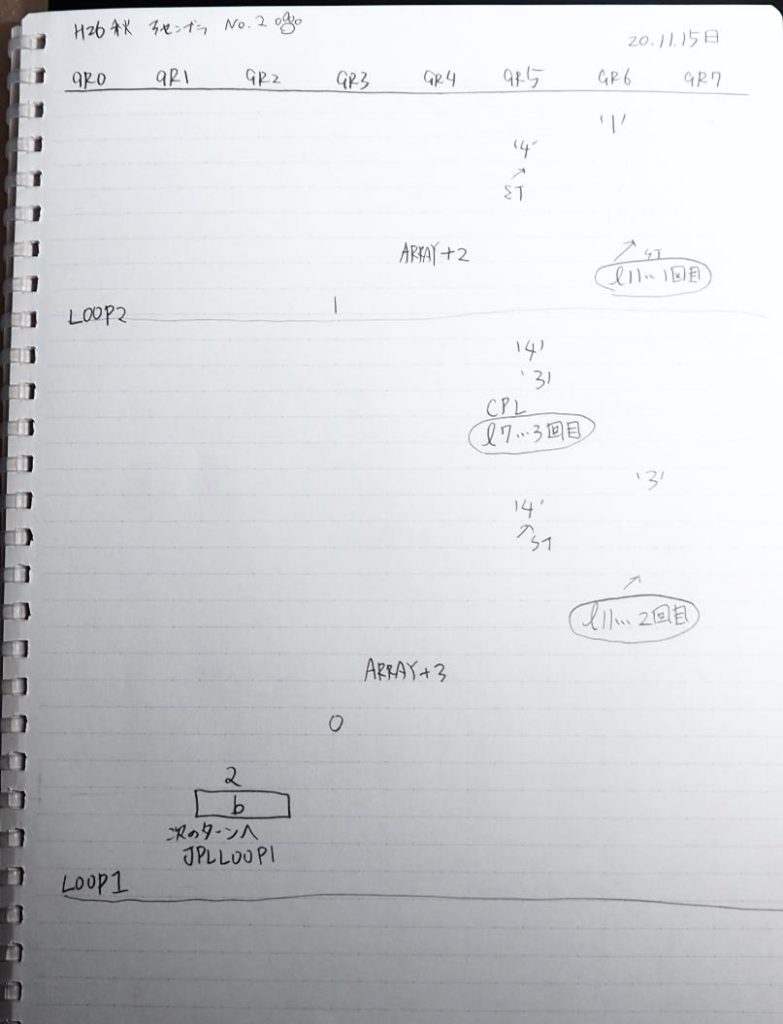 H26 秋 アセンブラ No.2
20.11.15日
GR0 GR1 GR2 GR3 GR4 GR5 GR6 GR7
'1'
'4'
ST
ARRAY+2
ST
l11… 1回目
1
LOOP2
'4'
'3'
CPL
l7…3回目
'3'
'4'
ST
l11… 2回目
ARRAY+3
0
2
b
次のターンへ
JPL LOOP1
LOOP1